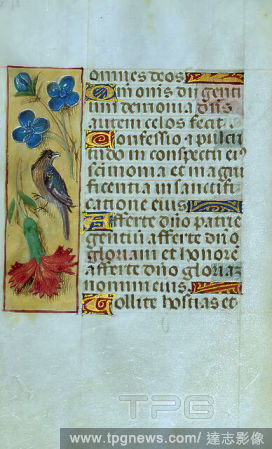 omnes deos
Qm onis dii genti
um demonia dñs
autem celos fecit
Confessio et pulcri
tudo in conspectu eiꝰ
scimonia et magni
ficentia in sanctifi
catione eius
Afferte dño patrie
gentiũ afferte dño
gloriam et honorẽ
afferte dño gloriaz
nomini eius
Tollite hostias et
TPG
www.tpgnews.com/達志影像